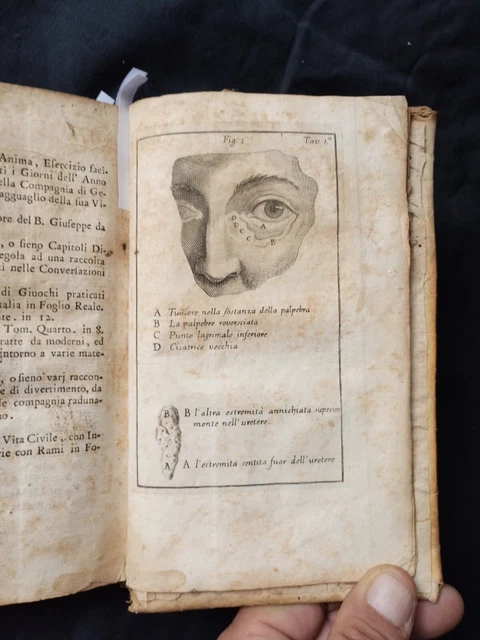 Anima, Esercizio facil-
ti i Giorni dell' Anno
ella Compagnia di Ge-
agguaglio della sua Vi-
ore del B. Giuseppe da
, o sieno Capitoli Di-
egola ad una raccolta
ti nelle Conversazioni
di Giuochi praticati
Italia in Foglio Reale.
te. in 12.
Tom. Quarto. in 8.
ratte da moderni, ed
intorno a varie mate-
, o sieno varj raccon-
e di divertimento, da
e compagnia raduna-
no.
Vita Civile, con In-
rie con Rami in Fo-
Fig. 1.ª Tav. 1.ª
A
B
C
C
C
D
A Tumore nella sostanza della palpebra
B La palpebre rovesciata
C Punto lagrimale inferiore
D Cicatrice vecchia
B B l'altra estremità annichiata superior
mente nell'uretere.
A A l'estremità sentita fuor dell'uretere